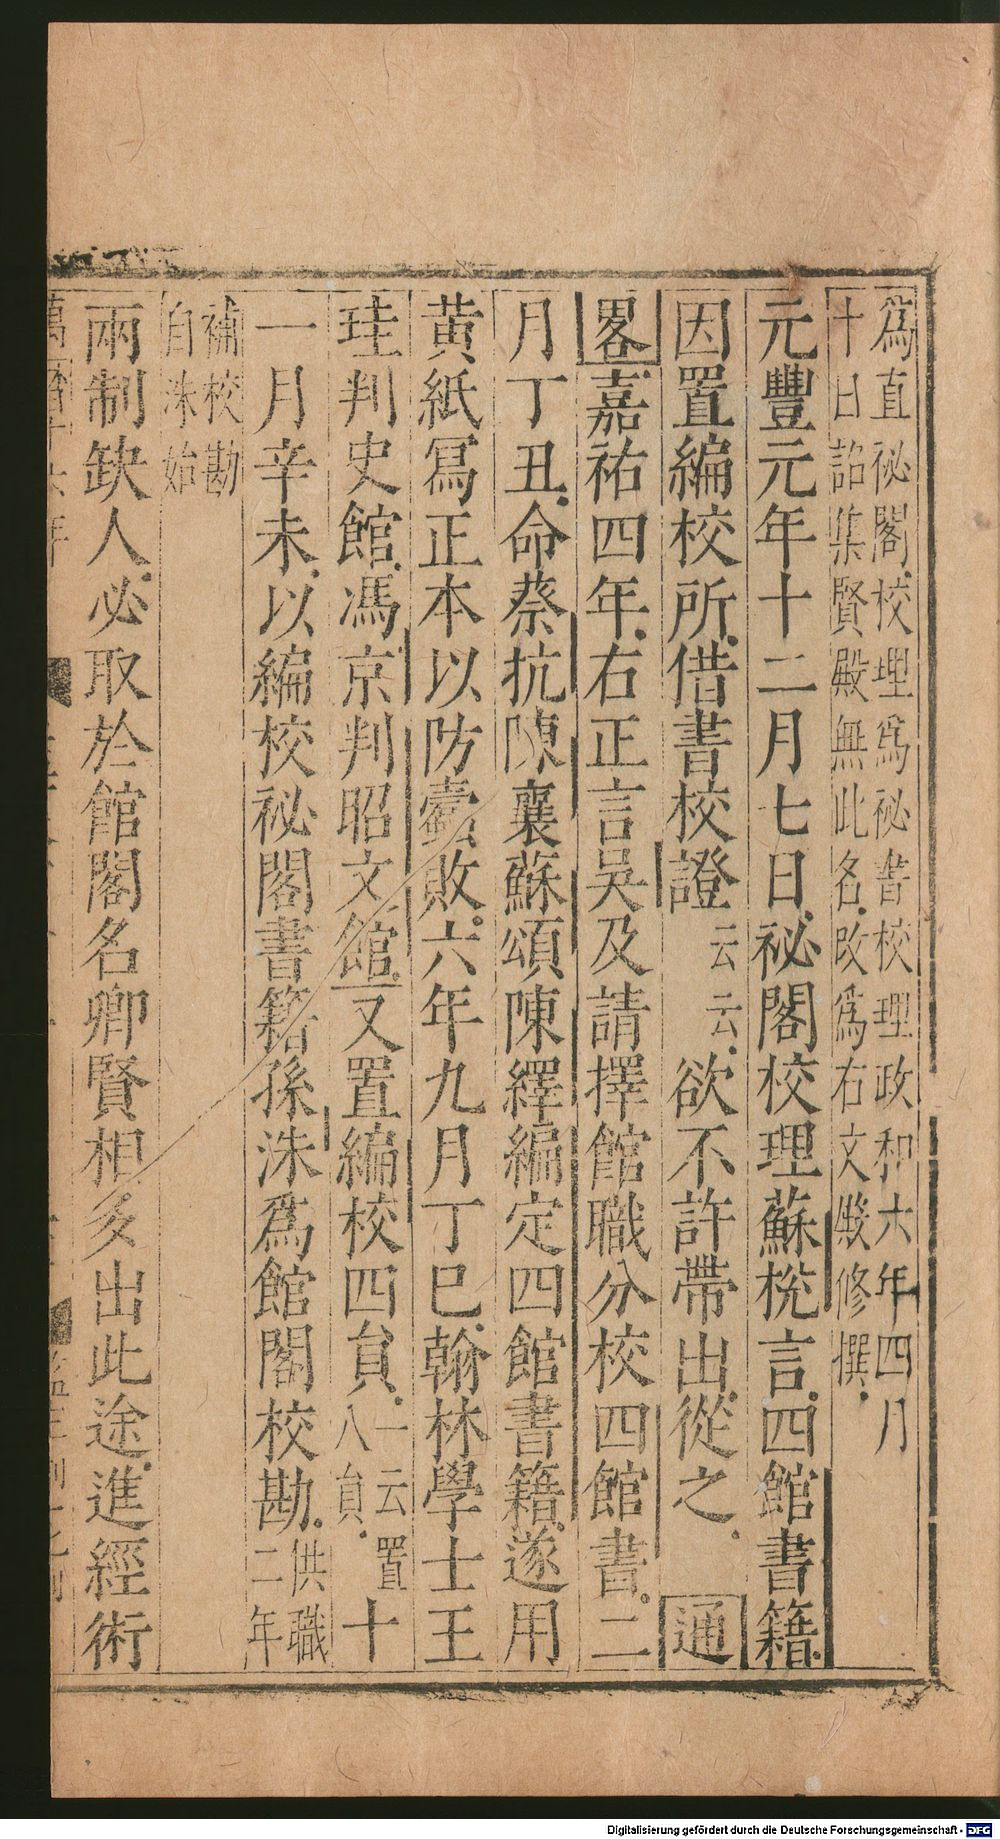 爲直祕閣校理爲祕書校理政和六年四月
十日詔集賢殿無此名改爲右文殿修撰
元豐元年十二月七日祕閣校理蘇棁言四館書籍
因置編校所借書校證云云欲不許帶出從之通
畧嘉祐四年右正言吳及請擇館職分校四館書二
月丁丑命蔡抗陳襄蘇頌陳繹編定四館書籍遂用
黄紙冩正本以防蠧敗六年九月丁巳翰林學士王
珪判史館馮京判昭文館又置編校四貟一云置
八貟十
一月辛未以編校祕閣書籍孫洙爲館閣校勘供職
二年
補校勘
自洙始
兩制缺人必取於館閣名卿賢相多出此途進經術
Digitalisierung gefördert durch die Deutsche Forschungsgemeinschaft - DFG